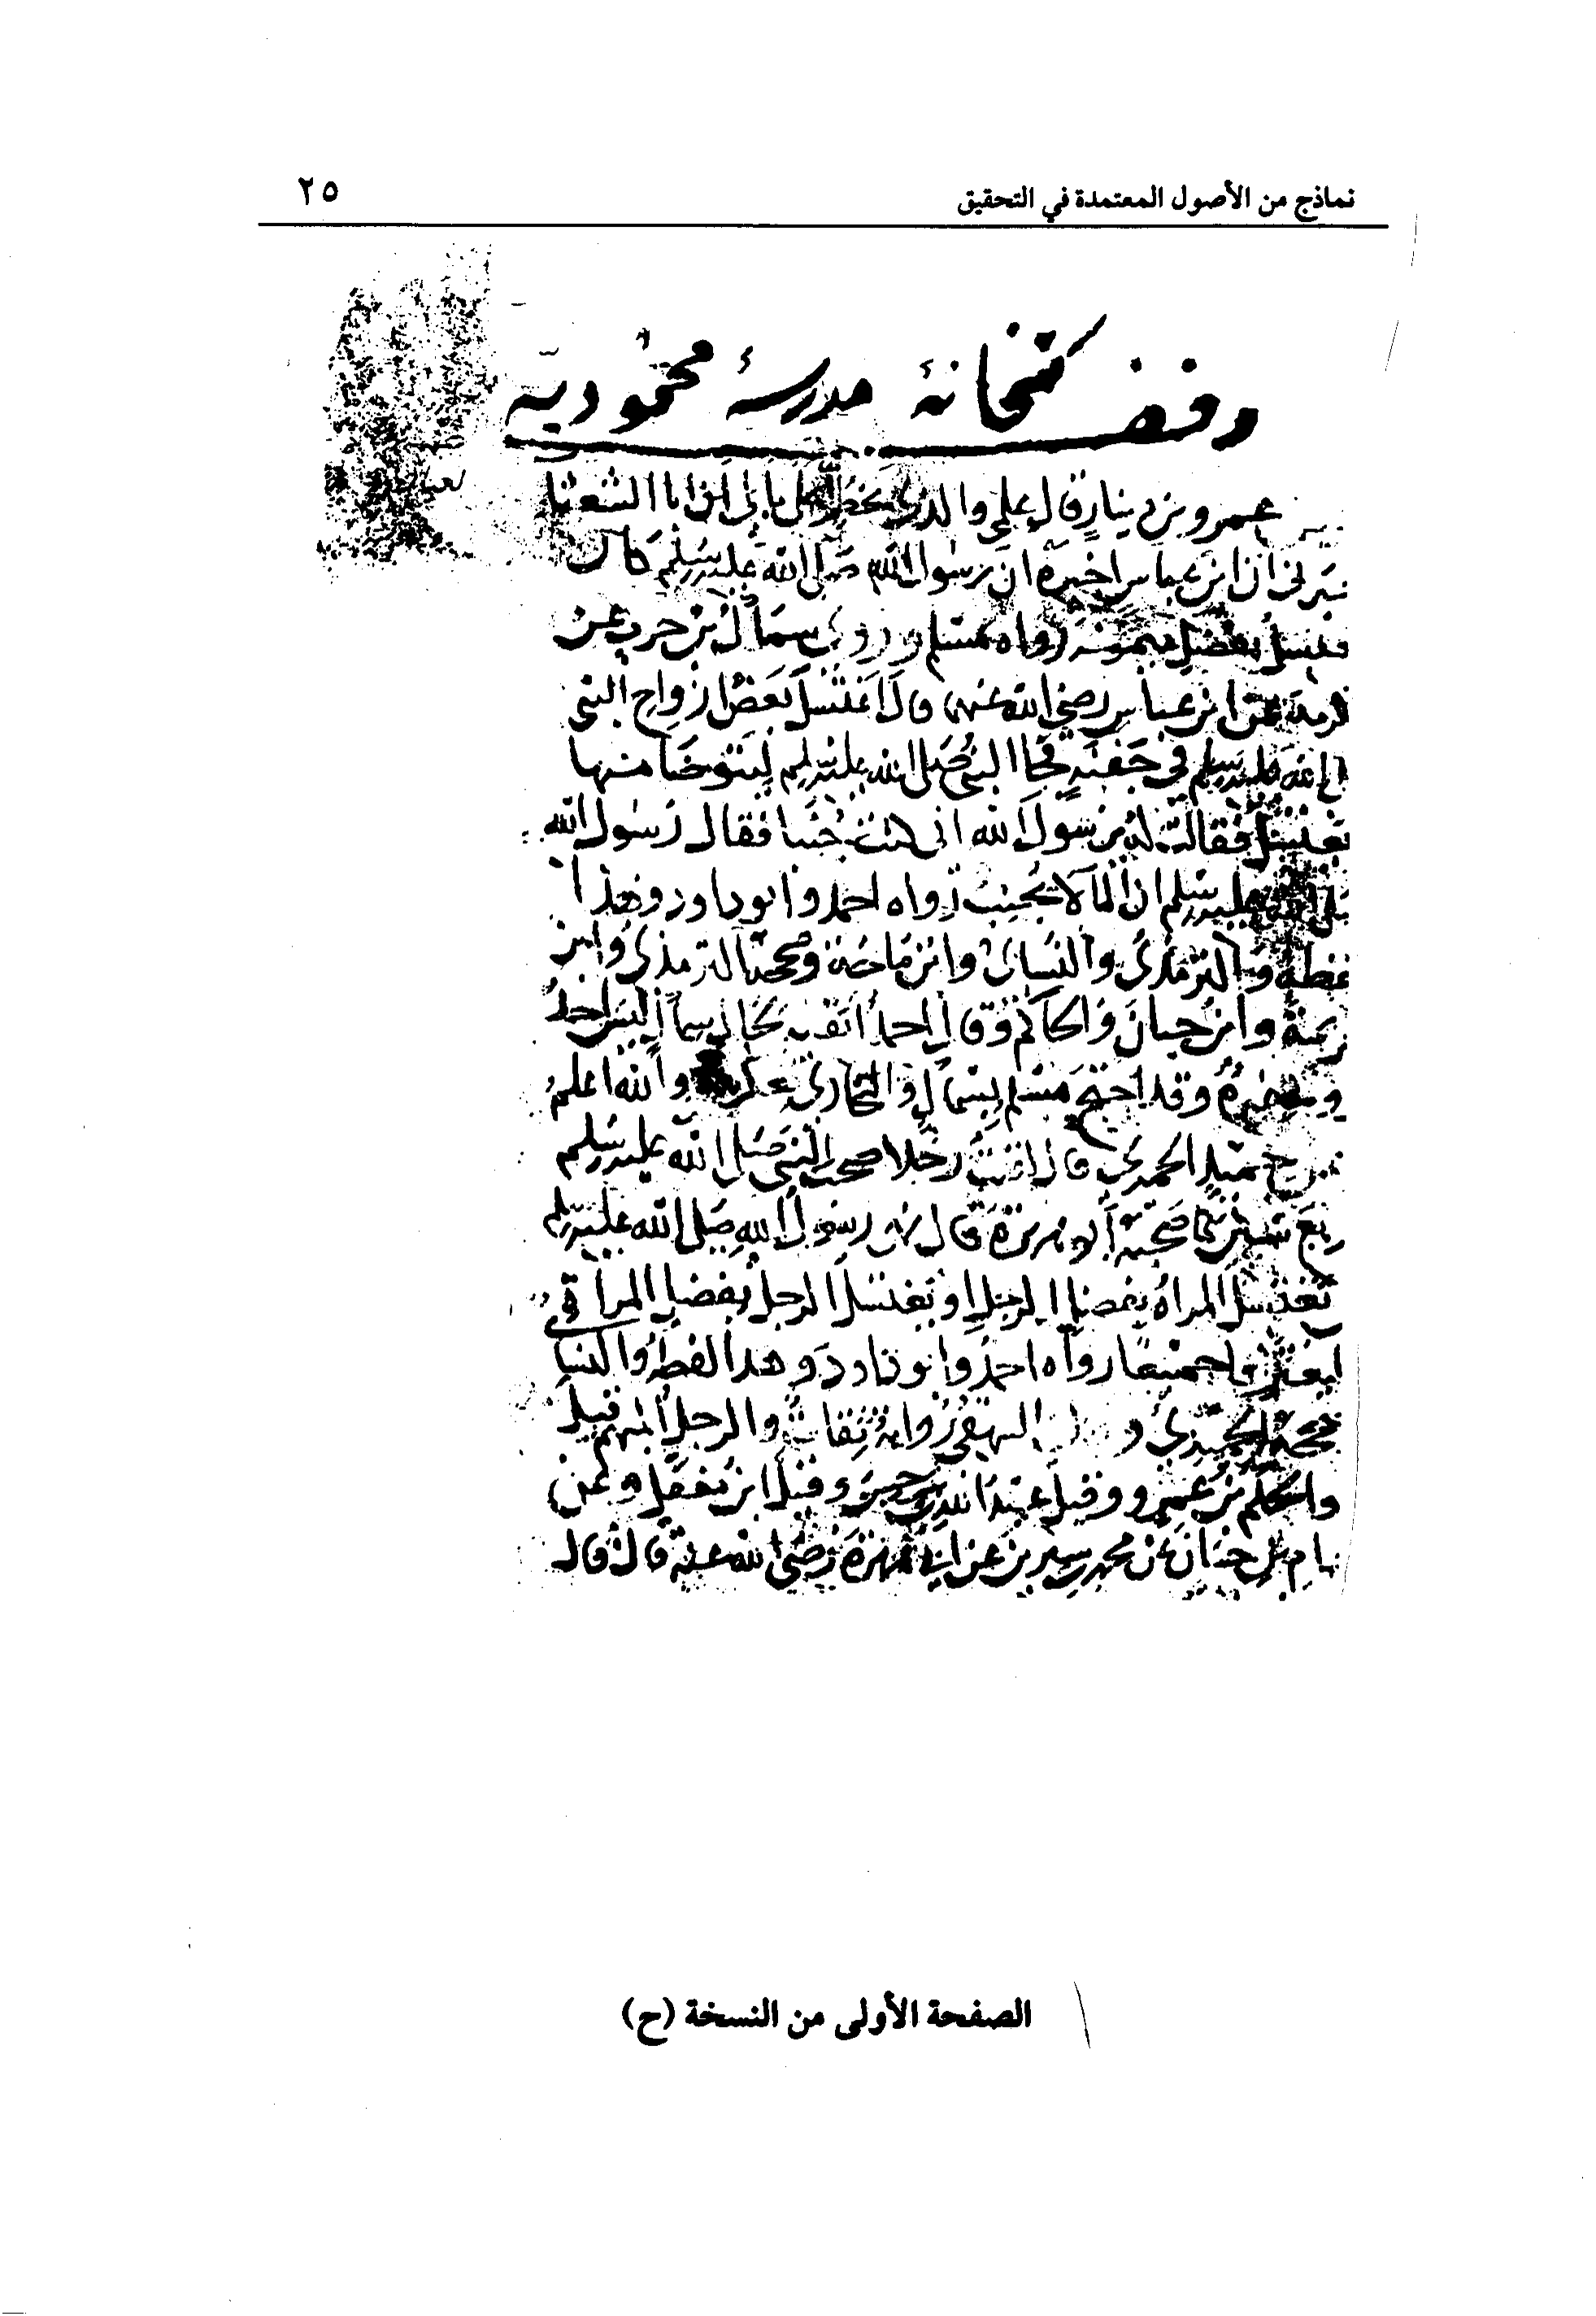 نماذج من الأصول المعتمدة في التحقيق ٢٥
وقف كتبخانهٔ مدرسهٔ محموديه
عمرو بن دينار قال علمي والذي يخطر على بالي ان ابا الشعثا
ان ابن عباس اخبره ان رسول الله صلى الله عليه وسلم كان
بفضل ميمونه رواه مسلم وروى سماك بن حرب عن
عن ابن عباس رضي الله عنهما قال اغتسل بعض ازواج النبي
الله عليه وسلم في جفنه فجا النبي صلى الله عليه وسلم ليتوضا منها
يغتسل فقالت له يرسول الله اني كنت جنبا فقال رسول الله
الله عليه وسلم ان الما لا يجنب رواه احمد وابو داود وهذا
لفظه والترمذي والنسائي وابن ماجه وصححه الترمذي وابن
وابن حبان والحاكم وقال احمد اتقيه لحال سماك ليس احد
يرويه غيره وقد احتج مسلم بسماك والبخاري بعكرمه والله اعلم
الحميري قال لقيت رجلا صحب النبي صلى الله عليه وسلم
اربع سنين كما صحبه ابو هريرة قال نهى رسول الله صلى الله عليه وسلم
تغتسل المراه بفضل الرجل او يغتسل الرجل بفضل المراة
جميعا رواه احمد وابو داود وهذا لفظه والنسا
الحميدي و البيهقي رواته ثقات والرجل المبهم قيل
الحكم بن عمرو وقيل عبد الله بن سرجس وقيل ابن مغفل وعن
هشام بن حسان عن محمد بن سيرين عن ابي هريرة رضي الله عنه قال قال
الصفحة الأولى من النسخة (ح)